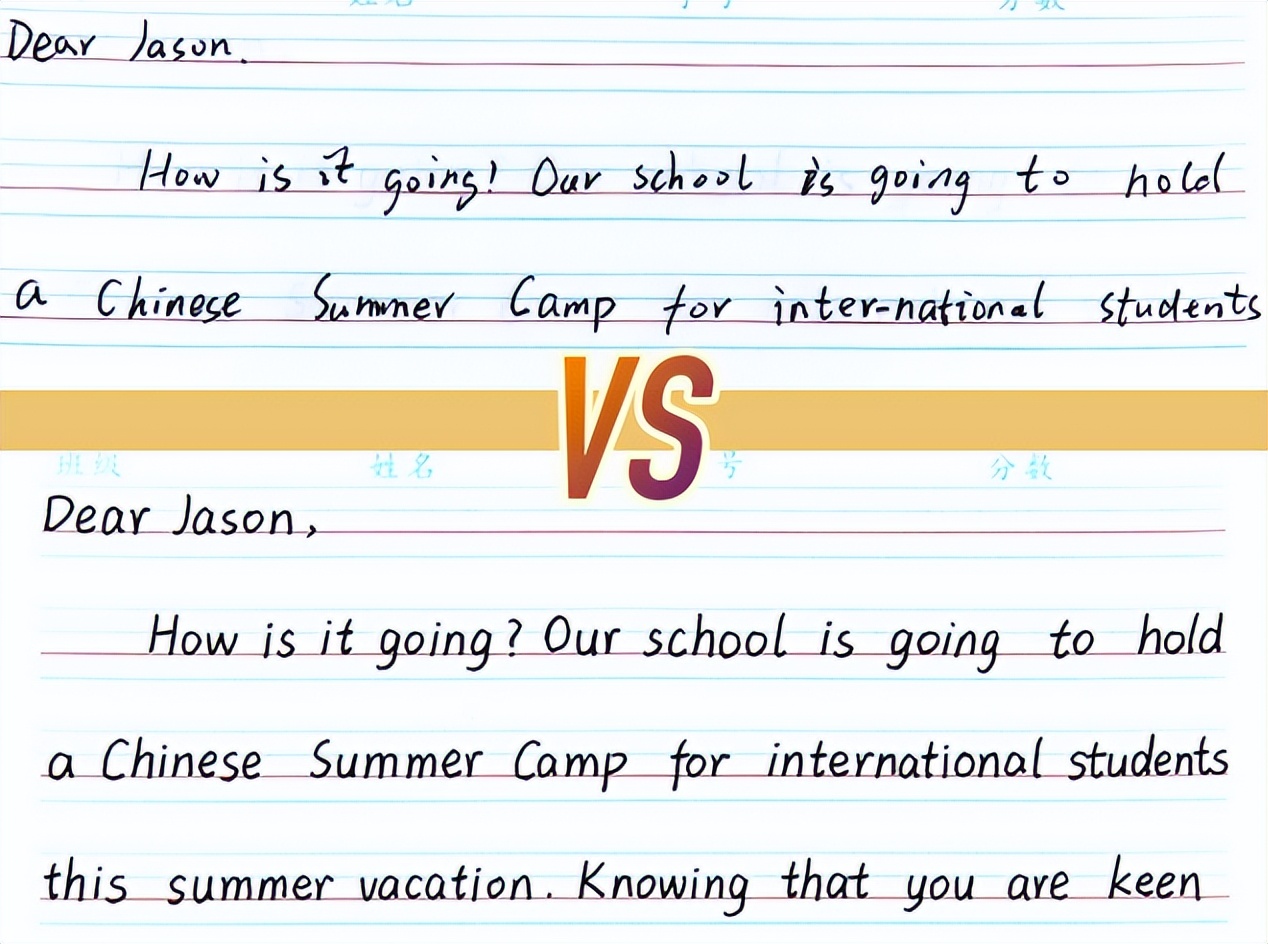 Dear Jason.
How is it going! Our school is going to hold
a Chinese Summer Camp for inter-national students
VS
班级 姓名 号 分数
Dear Jason,
How is it going? Our school is going to hold
a Chinese Summer Camp for international students
this summer vacation. Knowing that you are keen